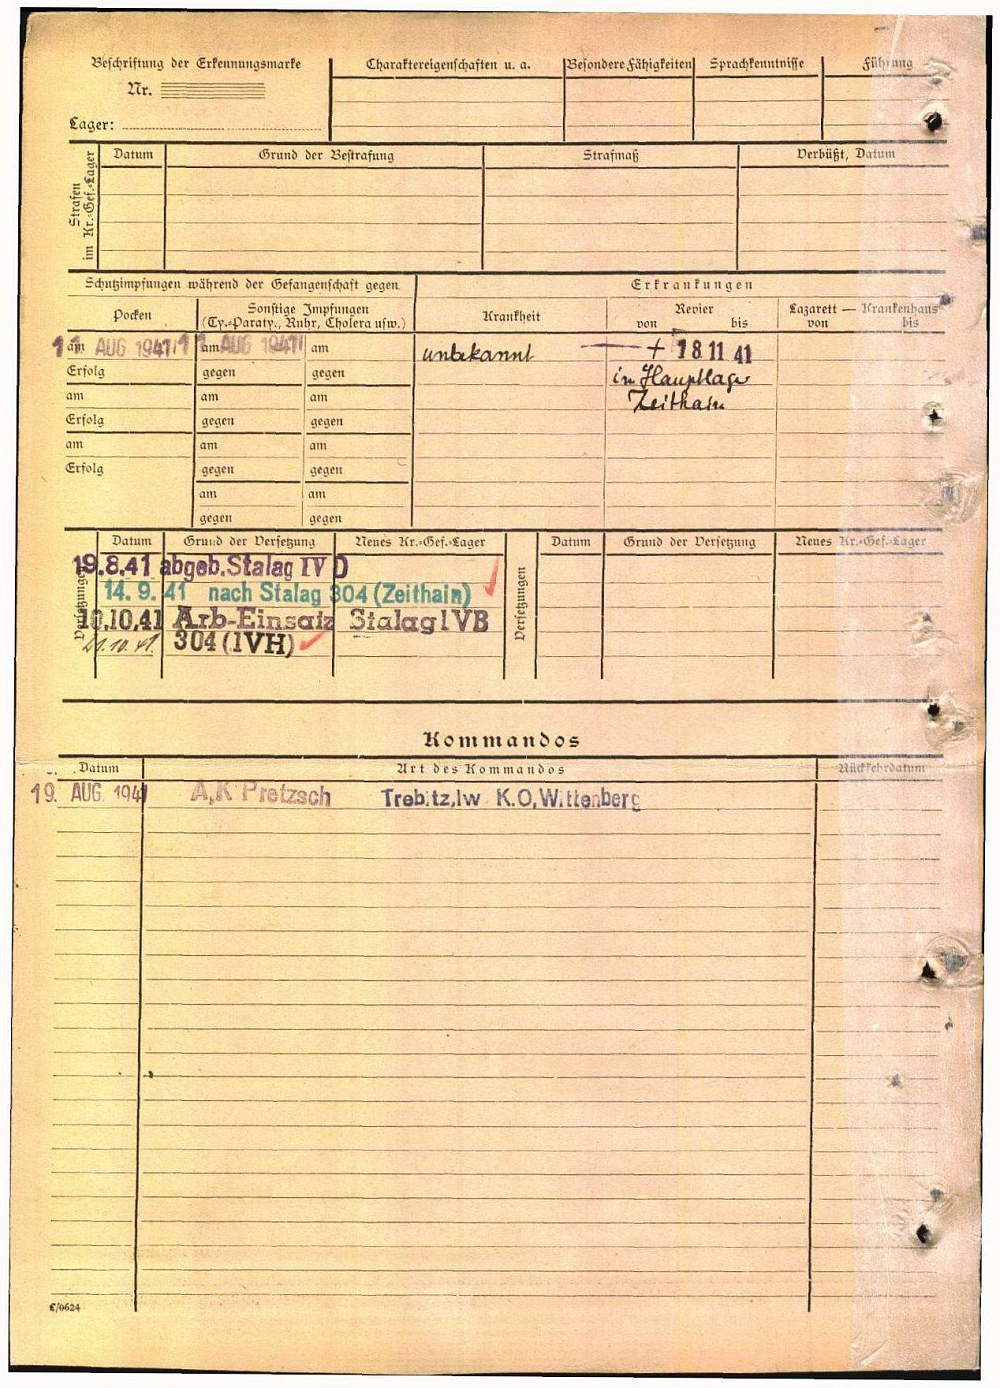 Beschriftung der Erkennungsmarke
Nr.
Lager:
Charaktereigenschaften u. a.
Besondere Fähigkeiten
Sprachkenntnisse
Führung
Strafen im Kr.=Gef.=Lager
Datum
Grund der Bestrafung
Strafmaß
Verbüßt, Datum
Schutzimpfungen während der Gefangenschaft gegen
Erkrankungen
Pocken
Sonstige Impfungen
(Ty.=Paraty., Ruhr, Cholera usw.)
Krankheit
Revier
von bis
Lazarett — Krankenhaus
von bis
am 11 AUG 1941 am 11 AUG 1941 am
unbekannt — + 18 11 41
Erfolg gegen gegen
im Hauptlager
am am am
Zeithain
Erfolg gegen gegen
am am am
Erfolg gegen gegen
am am
gegen gegen
Versetzungen
Datum Grund der Versetzung Neues Kr.=Gef.=Lager
19.8.41 abgeb. Stalag IV D
14. 9. 41 nach Stalag 304 (Zeithain)
10.10.41 Arb-Einsatz Stalag IVB
21.10.41. 304 (IVH)
Versetzungen
Datum Grund der Versetzung Neues Kr.=Gef.=Lager
Kommandos
Datum Art des Kommandos Rückkehrdatum
19. AUG 1941 A,K Pretzsch Trebitz,lw K.O,Wittenberg
E/0624